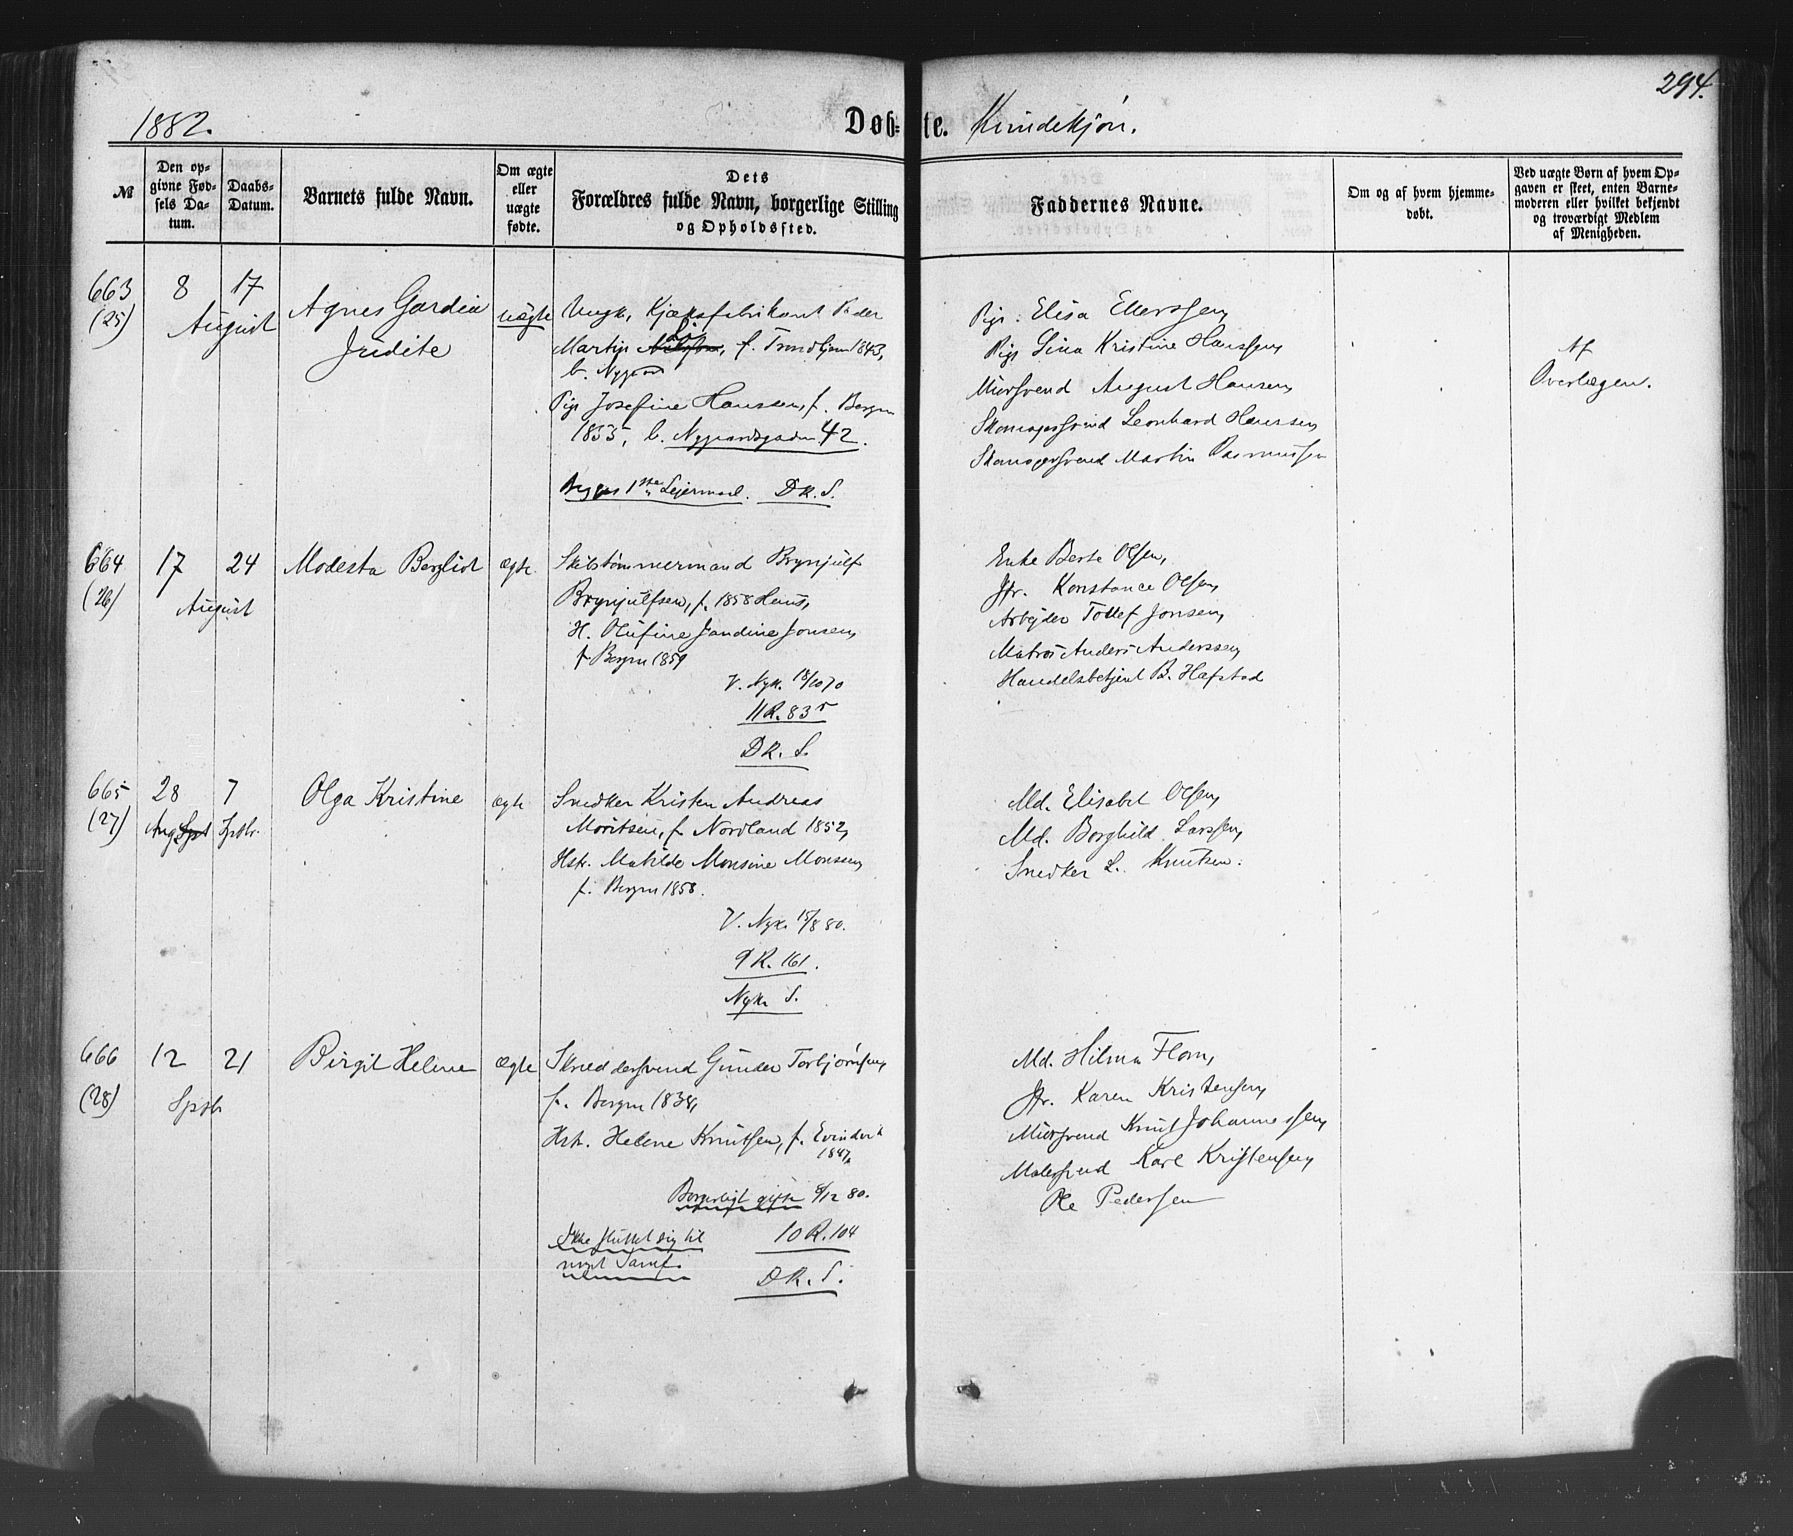 294.
1882.
Døb- te. Kvindekjøn.
№
Den op-
givne Fød-
sels Da-
tum.
Daabs-
Datum.
Barnets fulde Navn.
Om ægte
eller
uægte
fødte.
Dets
Forældres fulde Navn, borgerlige Stilling
og Opholdssted.
Faddernes Navne.
Om og af hvem hjemme-
døbt.
Ved uægte Børn af hvem Op-
gaven er skeet, enten Barne-
moderen eller hvilket bekjendt
og troværdigt Medlem
af Menigheden.
663
(25)
8 17
August
Agnes Gardea
Judite
uægte
Ungk. Kjæksfabrikant Peder
Martin f. Trondhjem 1843,
b. Nygaard
Pige Josefine Hanssen, f. Bergen
1855, b. Nygaardsgaden 42.
Begges 1ste Leiermaal. DK. S.
Pige Elisa Ellerssen,
Pige Lina Kristine Hanssen,
Mursvend August Hansen,
Skomagersvend Leonhard Hanssen
Skomagersvend Martin Rasmussen
Af
Overlægen.
664
(26)
17 24
August
Modesta Bergliot
ægte.
Skibstømmermand Brynjulf
Brynjulfsen, f. 1858 Haus,
H. Olufine Jandine Jonsen,
f. Bergen 1859
V. Nyk. 18/10 70
11 R. 83
DK. S.
Enke Berte Olsen,
Jfr. Konstance Olsen,
Arbejder Tollef Jonsen,
Matros Anders Anderssen,
Handelsbetjent B. Hafstad
665
(27)
28 7
Aug. Spt Sptbr.
Olga Kristine
ægte
Snedker Kristen Andreas
Moritsen, f. Nordland 1852,
Hstr. Matilde Monsine Monsen,
f. Bergen 1858.
V. Nyk. 15/8 80.
9 R. 161.
Nyk. S.
Md. Elisabet Olsen,
Md. Borghild Larssen,
Snedker L. Knutsen.
666
(28)
12 21
Sptbr
Birgit Helene
ægte
Skreddersvend Gunder Torbjørnsen,
f. Bergen 1838,
Hstr. Helene Knutsen, f. Evindvik
1847,
Borgerligt gifte 8/12 80.
Ikke sluttet sig til 10 R. 104
noget Samf.
DK. S.
Md. Hilma Flom,
Jfr. Karen Kristensen,
Mursvend Knut Johannessen,
Malersvend Karl Kristensen,
Ole Pedersen